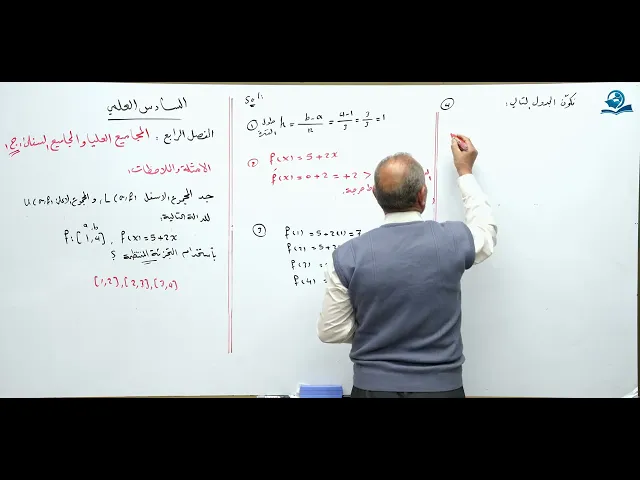 السادس العلمي
الفصل الرابع : المجاميع العليا والمجاميع السفلى : ج٢
الأمثلة والملاحظات :
جد المجموع الاسفل L(σ,f) ، والمجموع الاعلى U(σ,f)
للدالة التالية.
a, b
f: [1,4] , f(x)=5+2x
بأستخدام التجزئة المنتظمة ؟
[1,2],[2,3],[3,4]
Sol:
① طول الفترة h = b-a/n = 4-1/3 = 3/3 = 1
② f(x) = 5+2x
f́(x) = 0+2 = +2 >
③ f(1) = 5+2(1) = 7
f(2) = 5+
f(3) =
f(4) =
④ نكوّن الجدول التالي :